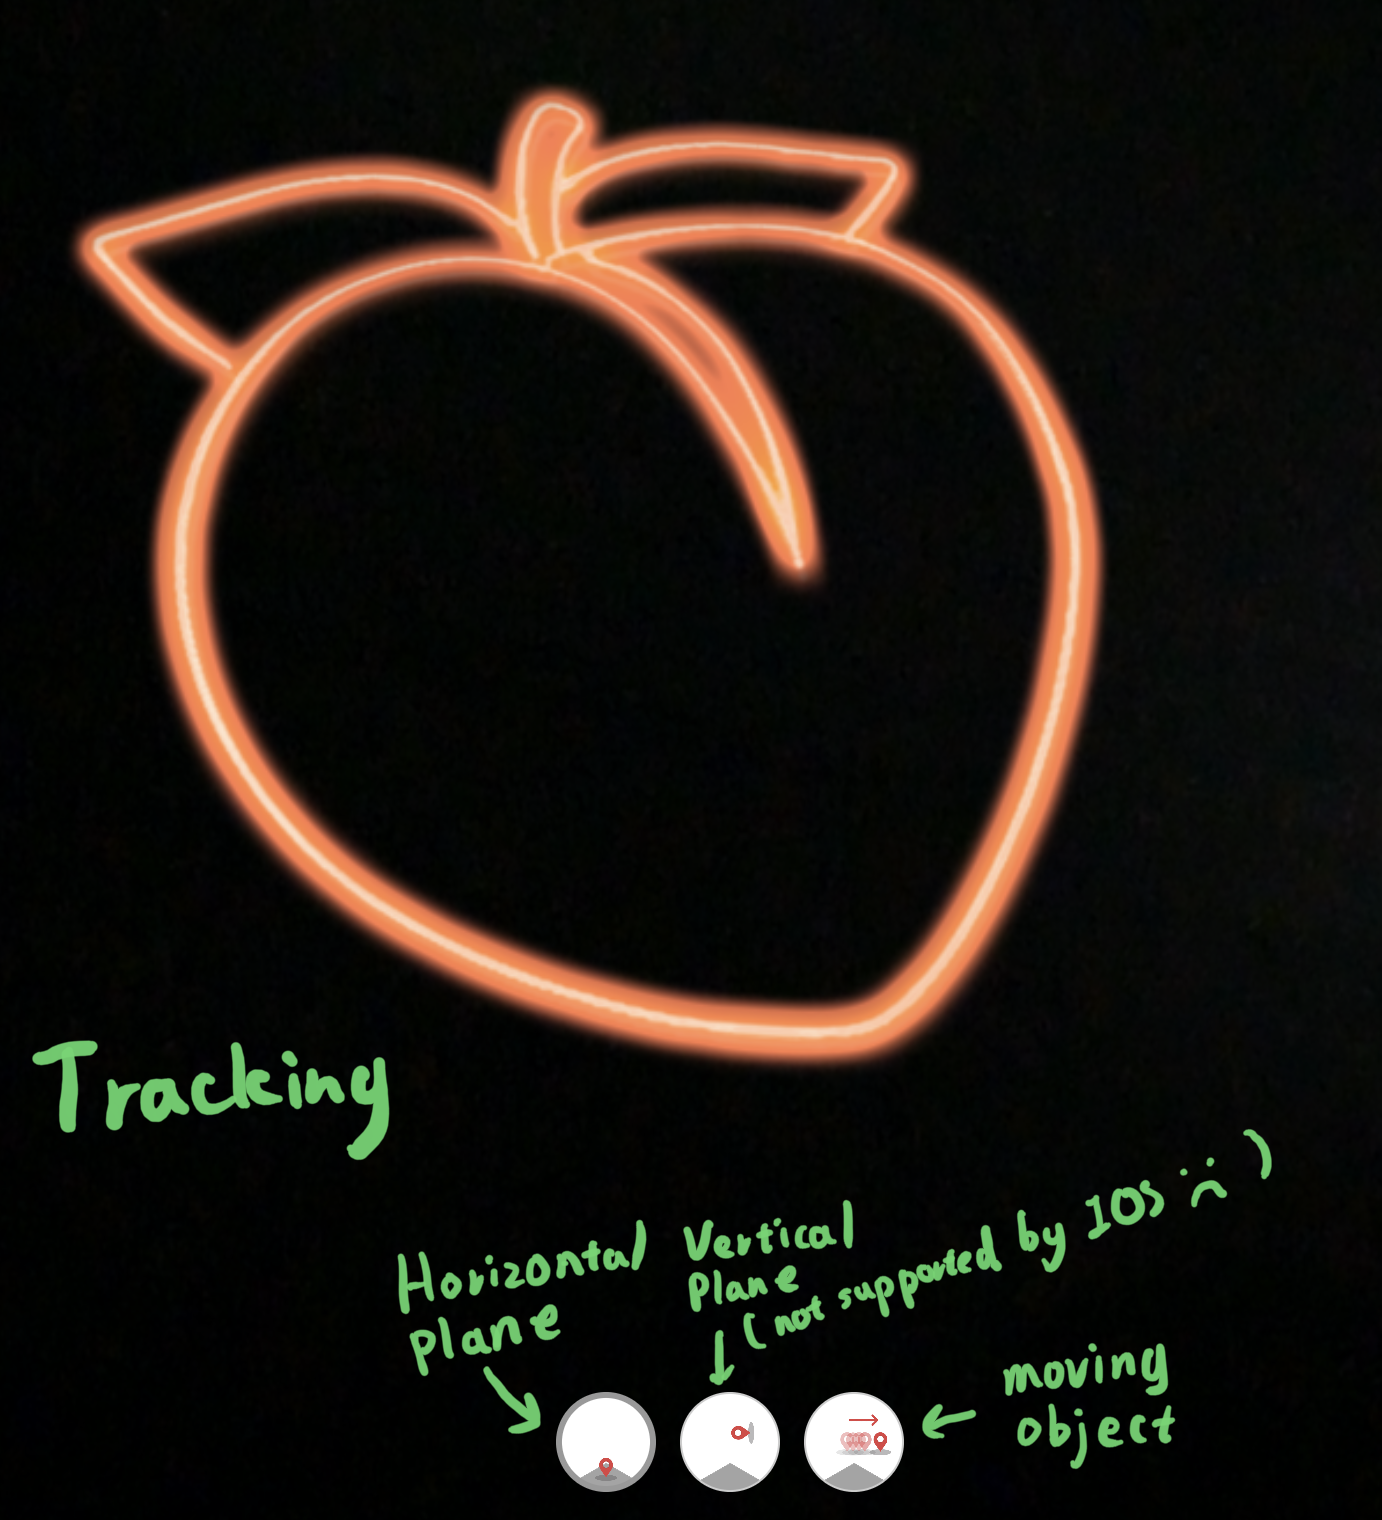 Tracking
Horizontal
plane
Vertical
Plane
(not supported by IOS :( )
moving
object